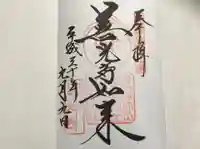 奉拝
善光寺如来
平成三十年
元月元日